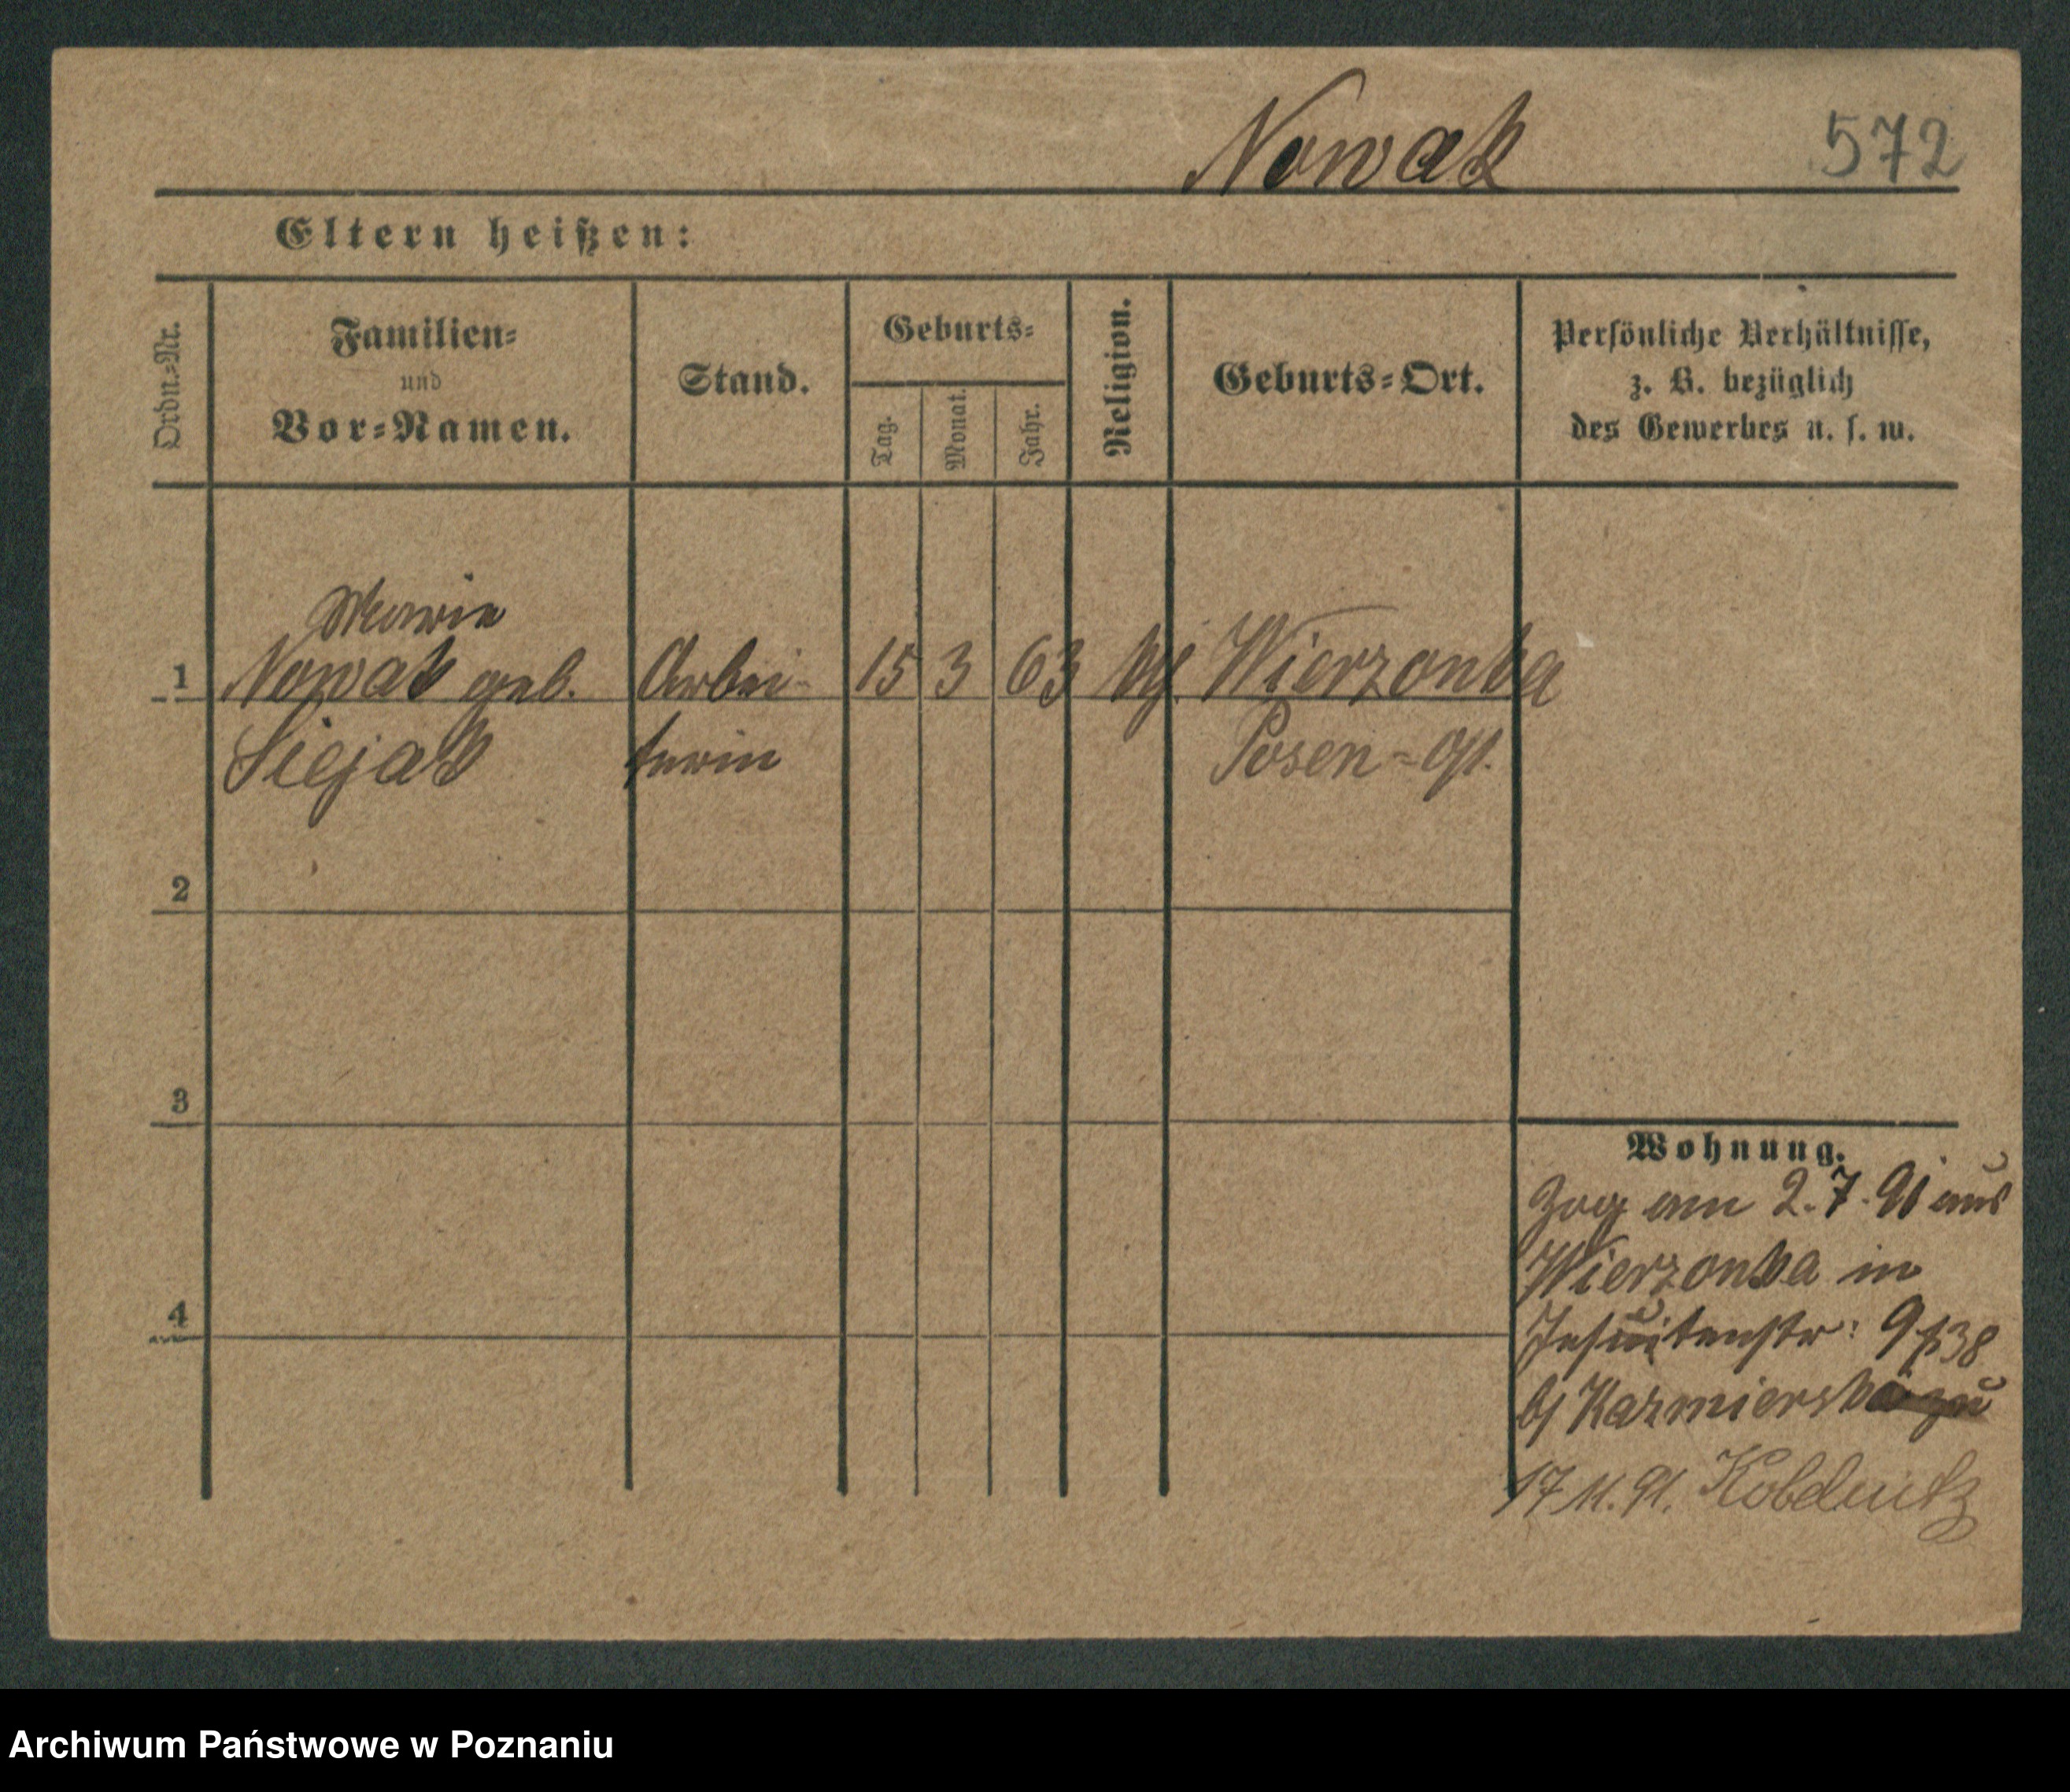 Nowak 572
Eltern heißen:
Ordn.-Nr.
Familien-
und
Vor-Namen.
Stand.
Geburts-
Tag.
Monat.
Jahr.
Religion.
Geburts-Ort.
Persönliche Verhältnisse,
z. B. bezüglich
des Gewerbes u. s. w.
Marie
1 Nowak geb. Arbei- 15 3 63 Wierzonka
Siejak terin Posen-Ost.
2
3
4
Wohnung.
Zog am 2.7.91 aus
Wierzonka in
Jesuitenstr: 9
bj Kazmierska zu
17 11. 91. Kobelnitz
Archiwum Państwowe w Poznaniu